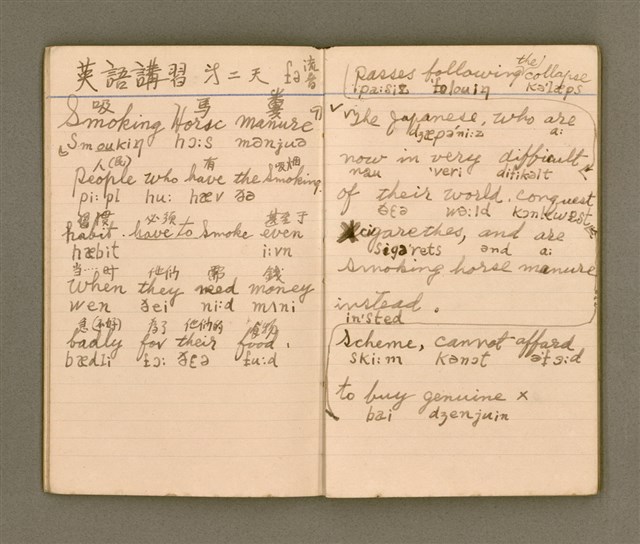 英語講習 第二天 fə 流音
吸 馬 糞
Smoking Horse manure
smoukiŋ hɔ:s mənjuə
人(民) 有 吸烟
people who have the Smoking
pi:pl hu: hæv ðə
習慣 必須 甚至于
habit. have to Smoke even
hæbit i:vn
当…时 他們 需 錢
When they need money
wen ðei ni:d mʌni
急(不好) 為了 他們的 食物
badly for their food.
bædli fɔ: ðɛə fu:d
passes following the collapse
ipa:siz folouiŋ kə'læps
The Japanese, who are
dʒæpə'ni:z a:
now in very difficult
nau 'veri difikəlt
of their world. conquest
ðɛə wə:ld kɔnkwest
cigarethes, and are
sigə'rets ənd a:
Smoking horse manure
instead.
in'sted
Scheme, cannot affard
ski:m kənət ə'fɔ:d
to buy genuine x
bai dʒenjuin